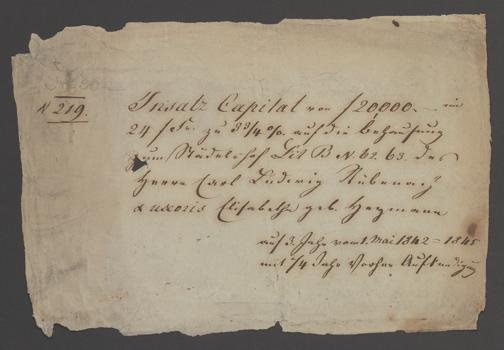 N 219.
Insatz Capital von f 20000.— im
24 f Fs. zu 3 3/4 %. auf die Behausung
zum Städelshof Lit B N. 62. 63. des
Herrn Carl Ludwig
& uxoris Elisabetha geb. Heymann
auf 3. Jahr vom 1. Mai 1842 = 1845
mit 1/4 Jahr Vorher Aufkündigung